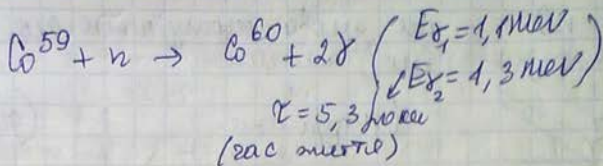 Co⁵⁹ + n → Co⁶⁰ + 2γ (Eγ₁ = 1,1 mev
Eγ₂ = 1,3 mev)
τ = 5,3 роки
(час життя)